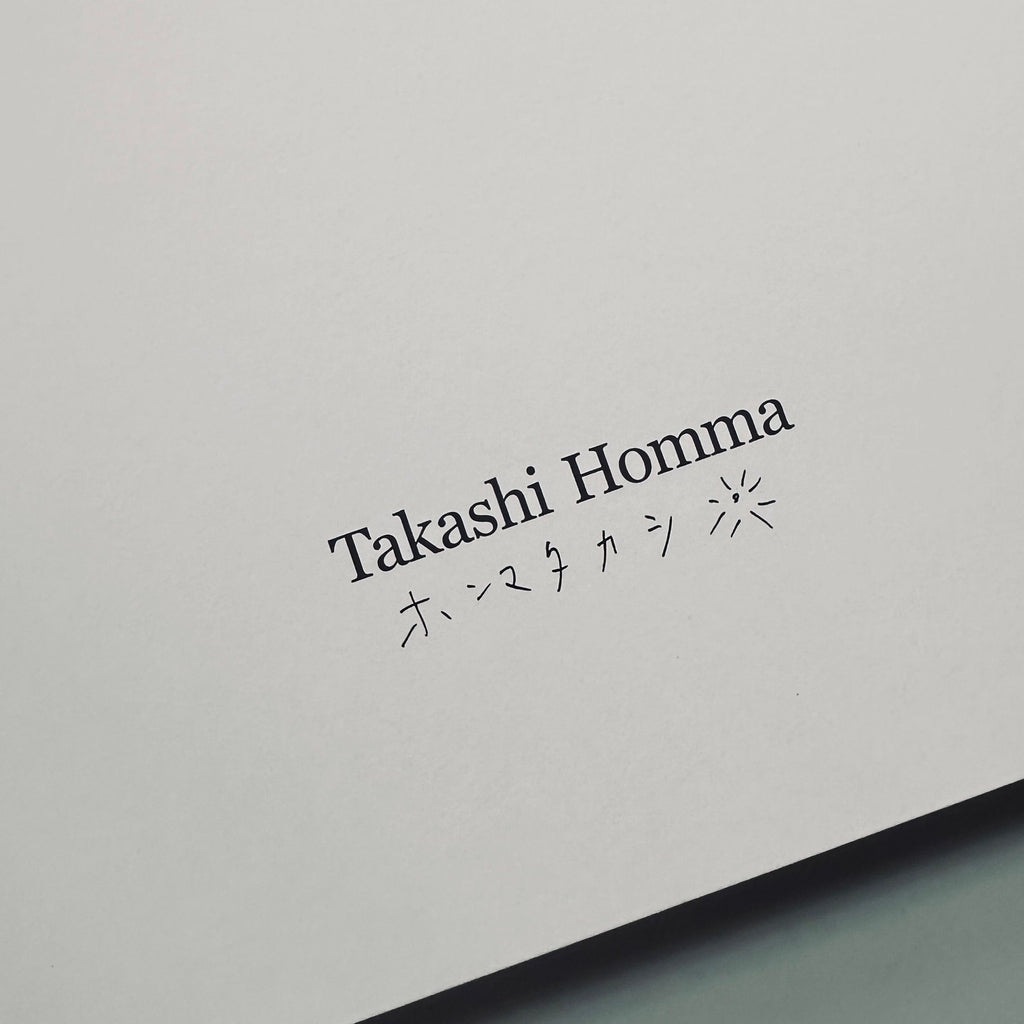 Takashi Homma
ホンマタカシ